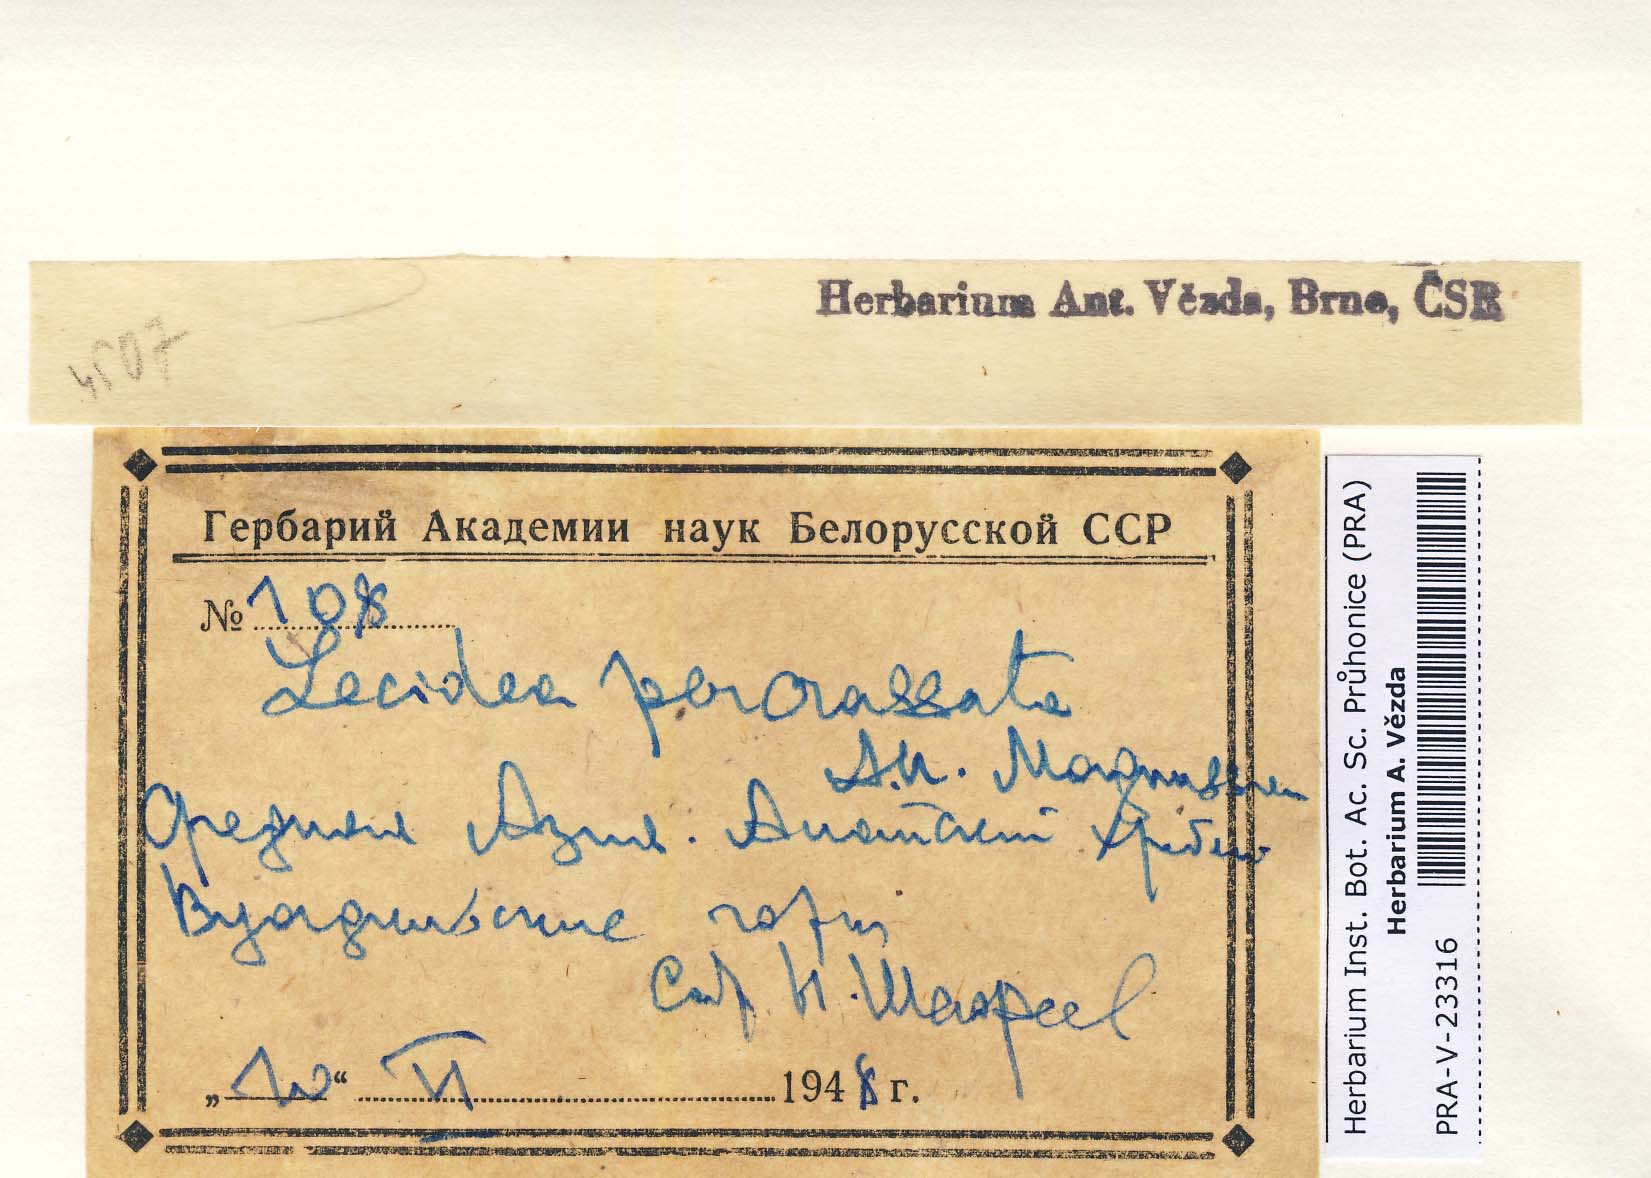 Herbarium Ant. Vězda, Brno, ČSR
4507
Гербарий Академии наук Белорусской ССР
№ 108
Lecidea percrassata
A.H. Magnusson
Средняя Азия. Алайский хребет
Вуадильские горы
Соб. Н.
„10“ VI 1948 г.
Herbarium Inst. Bot. Ac. Sc. Průhonice (PRA)
Herbarium A. Vězda
PRA-V-23316